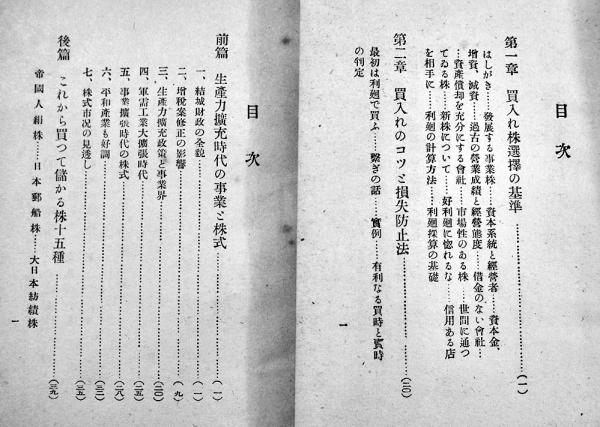 目次
第一章 買入れ株選擇の基準……………………(一)
はしがき……發展する事業株……資本系統と經營者……資本金、
增資、減資……過古の營業成績と經營態度……借金のない會社…
…資產償却を充分にする會社……市場性のある株……世間に通つ
てゐる株……新株について……好利廻に惚れるな……信用ある店
を相手に……利廻の計算方法……利廻採算の基礎
第二章 買入れのコツと損失防止法……………………(二〇)
最初は利廻で買ふ……繫ぎの話……實例……有利なる買時と賣時
の判定
一
目次
前篇 生產力擴充時代の事業と株式……………………(一)
一、結城財政の全貌……………………(一)
二、增稅案修正の影響……………………(九)
三、生產力擴充政策と事業界……………………(二〇)
四、軍需工業大擴張時代……………………(二五)
五、事業擴張時代の株式……………………(二八)
六、平和產業も好調……………………(三二)
七、株式市況の見透し……………………(三五)
後篇 これから買つて儲かる株十五種……………………(三九)
帝國人絹株……日本郵船株……大日本紡績株
一